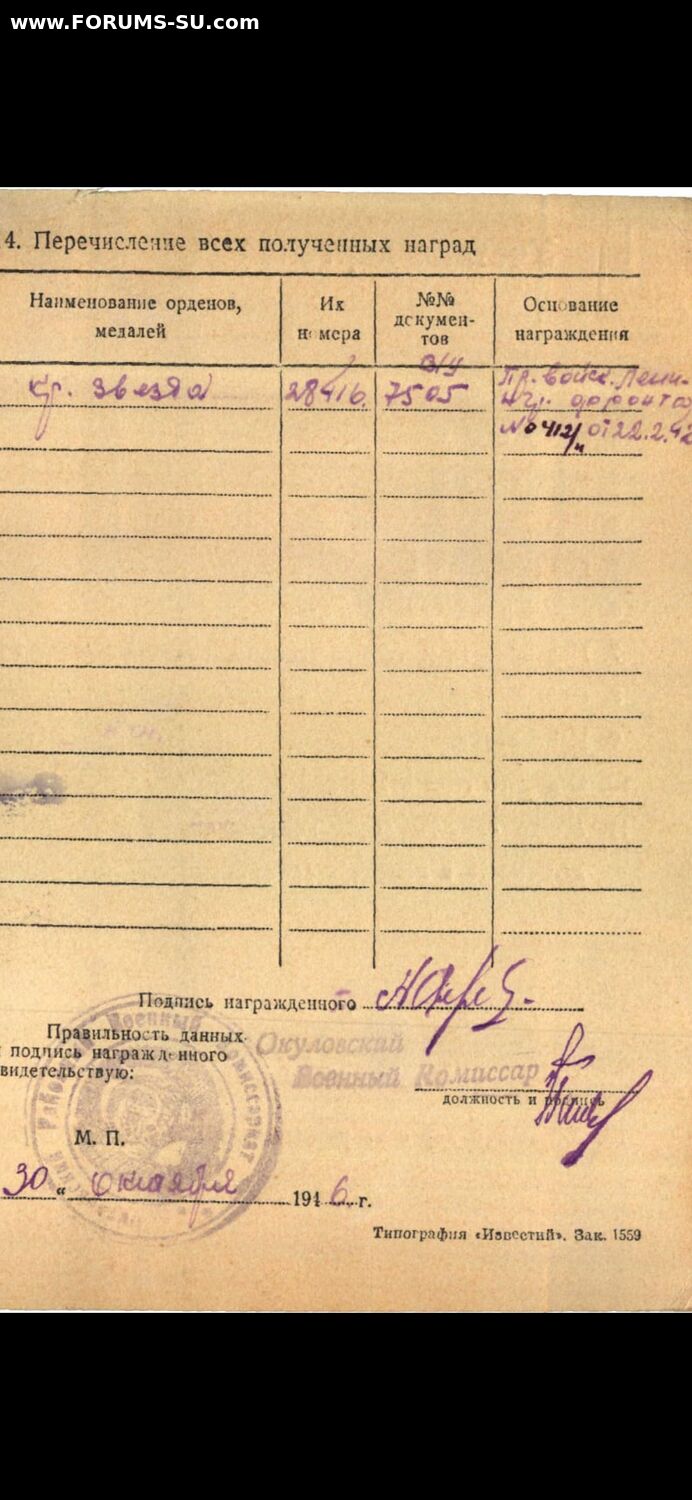 www.FORUMS-SU.com
4. Перечисление всех полученных наград
Наименование орденов, медалей
Их номера
№№ документов
Основание награждения
кр. звезда
28416
7505
Пр. войск. Ленингр. фронта
№ 412/н от 22.2.42
Подпись награжденного
Правильность данных
и подпись награжденного
свидетельствую:
Окуловский
Военный Комиссар
должность и подпись
М. П.
30 " октября 1946 г.
Типография «Известий». Зак. 1559